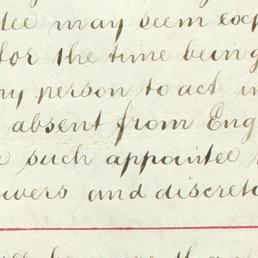 tee may seem exp
for the time being
ny person to act in
absent from Eng
such appointee
wers and discreti